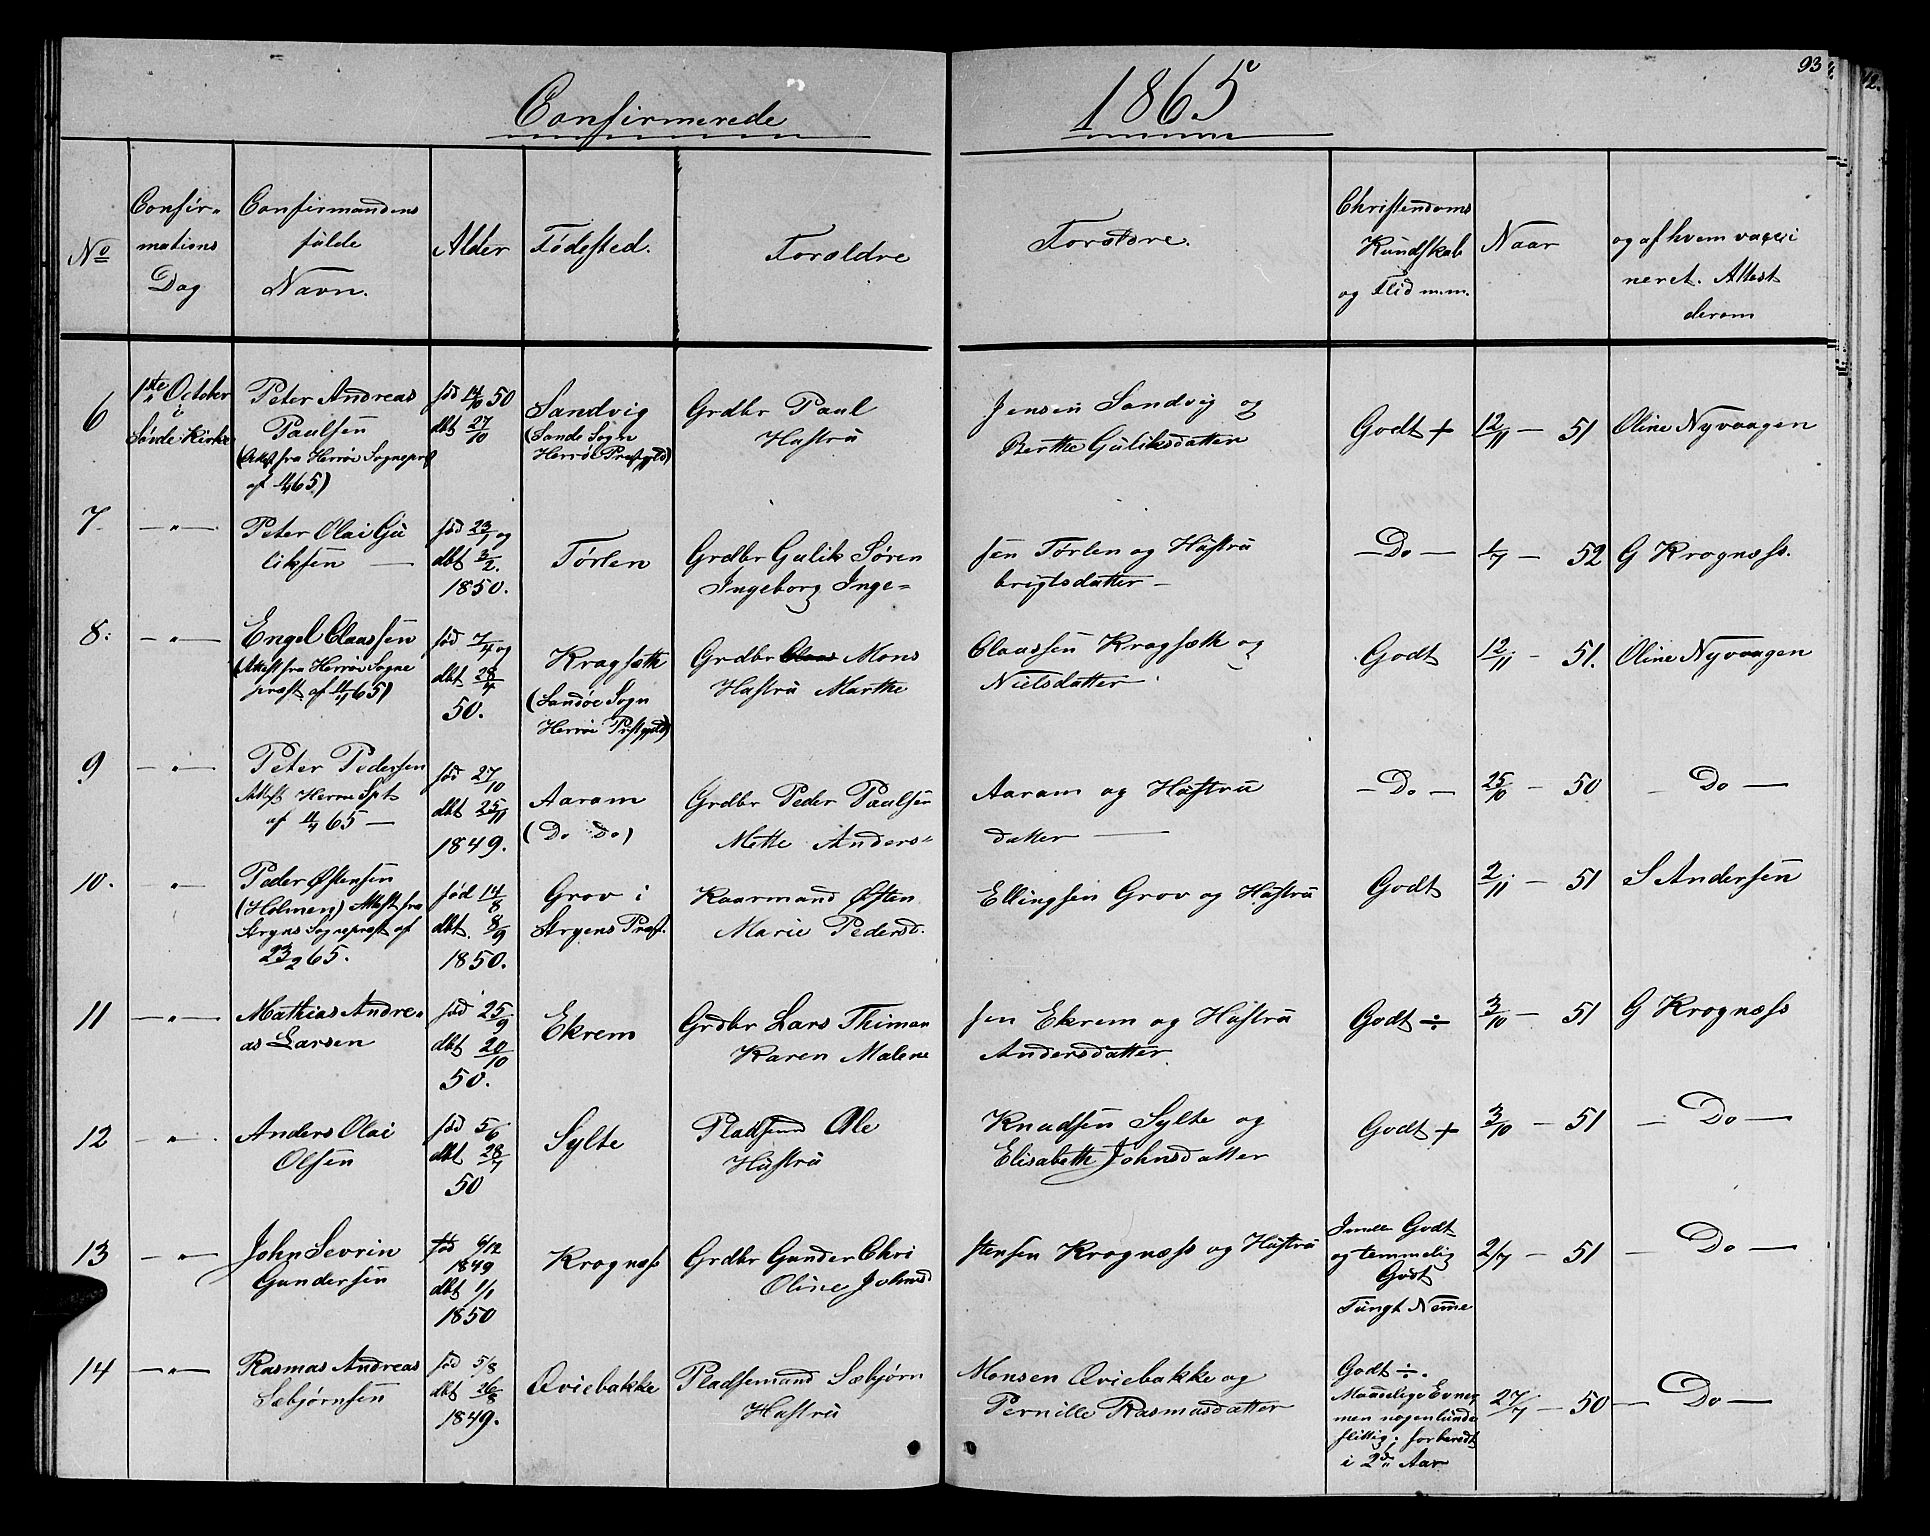 Confirmerede 1865
93
No
Confir-
mations
Dag
Confirmandens
fulde
Navn.
Alder
Fødested.
Forældre
Forældre.
Christendoms
Kundskab
og Flid m.m.
Naar
og af hvem vacci
neret. Attest
derom
6
1ste October
i
Søvde Kirke
Peter Andreas
Paulsen
(Attest fra Herröe Sognepræst
af 11/4 65)
fød 14/10 50
dbt 27/10
Sandvig
(Sande Sogn
Herröe Præstgjld)
Grdbr Paul
Hustru
Jensen Sandvig og
Berthe Guliksdatter
Godt +
12/11 - 51
Oline Nyvaagen
7
- " -
Peter Olai Gu
liksen -
fød 23/1 og
dbt 3/2.
1850.
Tørlen
Grdbr Gulik Søren
Ingeborg Inge=
sen Tørlen og Hustru
brigtsdatter -
- Do -
1/7 - 52
G Krognæss.
8.
- " -
Engel Claassen
(Attest fra Herröe Sogne
præst af 11/4 65)
fød 7/4 og
dbt 28/4
50.
Kragsæth
(Sandöe Sogn
Herröe Præstgjeld)
Grdbr Claas Mons
Hustru Marthe
Claassen Kragsæth og
Nielsdatter
Godt
12/11 - 51.
Oline Nyvaagen
9
- " -
Peter Pedersen
Attest Herröe Spt
af 11/4 65 -
fød 27/10
dbt 25/11
1849.
Aaram
(Do Do)
Grdbr Peder Paulsen
Mette Anders=
Aaram og Hustru
datter -
- Do -
25/10 - 50
- Do -
10.
- " -
Peder Østensen
(Holmen) Attest fra
Stryns Sognepræst af
23/2 65.
fød 14/8
dbt. 8/9
1850.
Grov i
Stryens Præst.
Kaarmand Østen
Marie Pedersd.
Ellingsen Grov og Hustru
Godt
2/11 - 51
S Andersen
11
- " -
Mathias Andre-
as Larsen
fød 25/9
dbt 20/10
50.
Ekrem
Grdbr Lars Thiman
Karen Malene
sen Ekrem og Hustru
Andersdatter
Godt ÷
3/10 - 51
G Krognæss
12
- " -
Anders Olai
Olsen
fød 5/6
dbt 28/7
50
Sylte
Pladsmd Ole
Hustru
Knudsen Sylte og
Elisabeth Johnsdatter
Godt +
3/10 - 51
- Do -
13
- " -
John Sevrin
Gundersen
fød 6/12
1849
dbt 1/1
1850
Krognæss
Grdbr Gunder Chri
Oline Johnsd
stensen Krognæss og Hustru
Imell Godt
og temmelig
Godt
Tungt Nemme
2/7 - 51
- Do -
14
- " -
Rasmus Andreas
Sæbjørnsen
fød 5/8
dbt 26/8
1849.
Qviebakke
Pladsemand Sæbjørn
Hustru
Monsen Qviebakke og
Pernille Rasmusdatter
Godt ÷.
Maadelige Evner
men nogenlunde
flittig; forberedt
i 2de Aar
27/7 - 50
- Do -